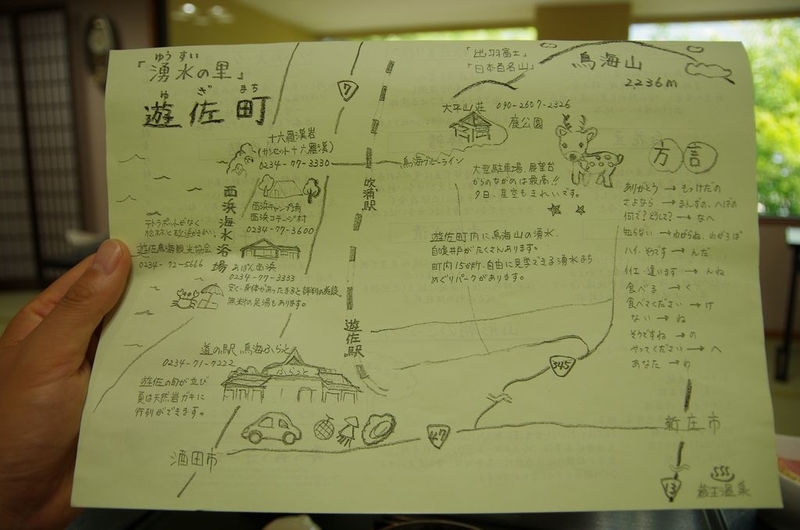 「湧水の里」
ゆうすい
遊佐町
ゆざまち
7
「出羽富士」
「日本百名山」
鳥海山
2236m
大平山荘 090-2607-2326
庭公園
大型駐車場、展望台
からのながめは最高!!
夕日、星空もきれいです。
十六羅漢岩
(サンセット十六羅漢)
0234-77-3330
鳥海ブルーライン
吹浦駅
西浜キャンプ場
西浜コテージ村
0234-77-3600
西浜海水浴場
テトラポットがなく
遊佐鳥海観光協会
0234-72-5666
あぽん西浜
0234-77-3333
無料の足湯もあります。
遊佐町内に鳥海山の湧水、
自噴井戸がたくさんあります。
町内150ヶ所、自由に見学できる湧水もあり
めぐりパークがあります。
遊佐駅
道の駅 鳥海ふらっと
0234-71-7222
ふらっと
遊佐の旬が並び
夏は天然岩ガキに
行列ができます。
345
47
酒田市
新庄市
13
蔵王温泉
方言
ありがとう→もっけだの
さよなら→まんずの、へばの
何で?どうして?→なへ
知らない→わがらね、わがらば
ハイ、そうです→んだ
イイエ、違います→んね
食べる→く
食べてください→け
ない→ね
そうですね→の
やってください→へ
あなた→の